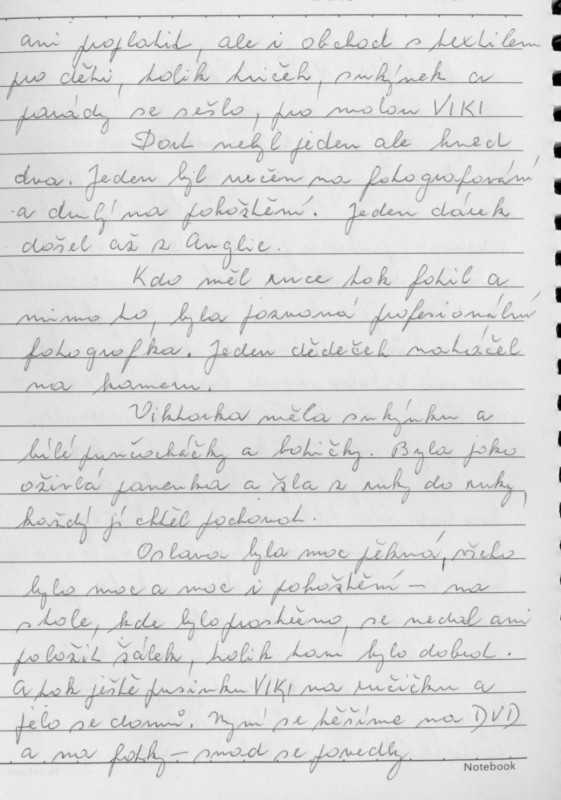 ani projlatit, ale i obchod s textilem
pro děti, tolik triček, sukýnek a
parády se sešlo, pro malou VIKI
Dort nebyl jeden ale hned
dva. Jeden byl určen na fotografování
a druhý na pohoštění. Jeden dárek
došel až z Anglie.
Kdo měl ruce tak fotil a
mimo to, byla pozvaná profesionální
fotografka. Jeden dědeček natáčel
na kameru.
Viktorka měla sukýnku a
bílé punčocháčky a botičky. Byla jako
oživlá panenka a šla z ruky do ruky,
každý jí chtěl pochovat.
Oslava byla moc pěkná, všeho
bylo moc a moc i pohoštění – na
stole, kde bylo prostřeno, se nedal ani
položit šálek, tolik tam bylo dobrot.
A pak ještě pusinku VIKI na ručičku a
jelo se domů. Nyní se těšíme na DVD
a na fotky – snad se povedly.
Notebook